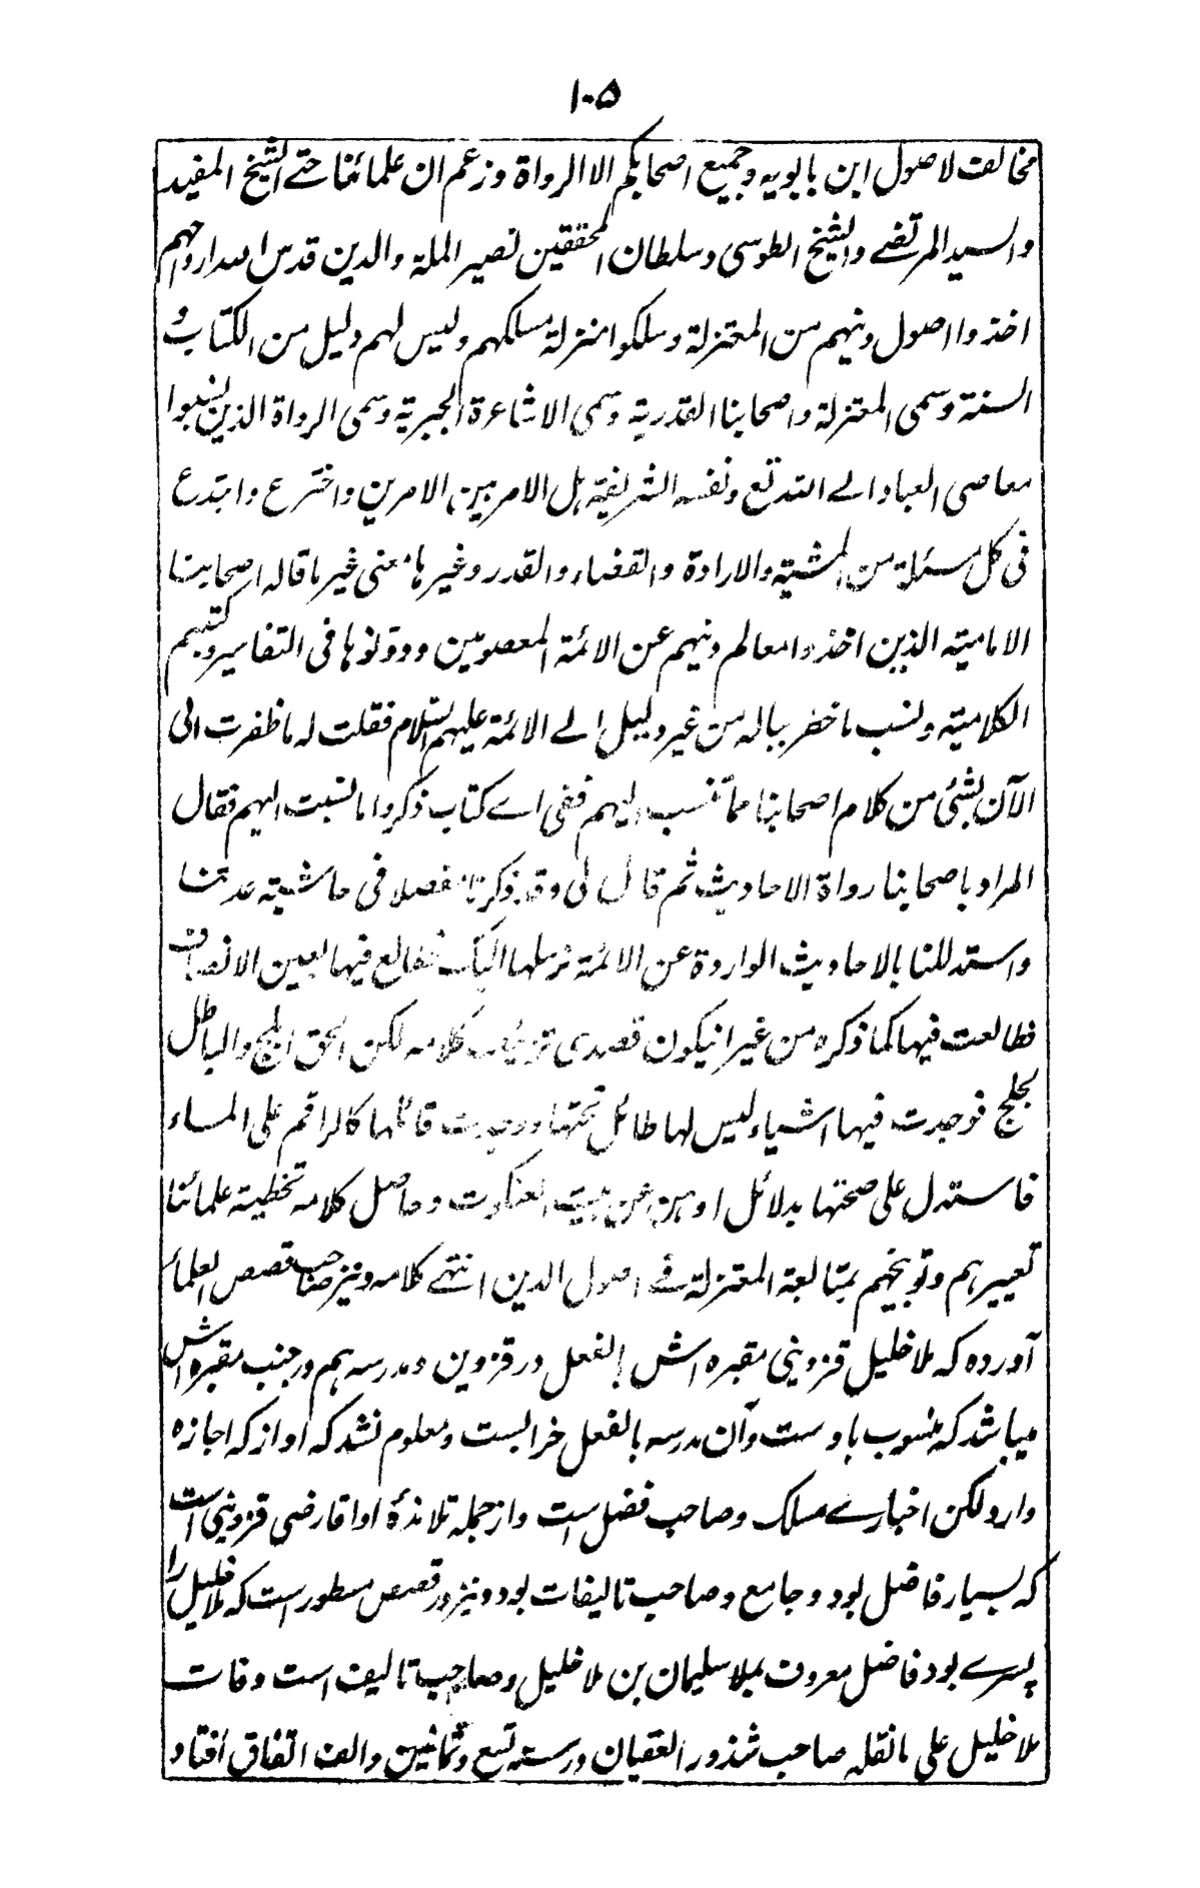 ۱۰۵
مخالفت لاصول ابن بابویه وجمیع اصحابکم الا الرواة وزعم ان علمائنا حتے الشیخ المفید
والسید المرتضے والشیخ الطوسی وسلطان المحققین نصیر الملة والدین قدس الله ارواحهم
اخذوا اصول دینهم من المعتزلة وسلکوا منزلة مسلکهم ولیس لهم دلیل من الکتاب و
السنة وسمی المعتزلة واصحابنا القدریة وسمی الاشاعرة الجبریة وسمی الرواة الذین نسبوا
معاصی العباد الے الله تع ونفسه الشریفة اہل الامر بین الامرین واخترع وابتدع
فی کل مسئلة من المشیة والارادة والقضاء والقدر وغیرها معنی غیر ما قاله اصحابنا
الامامیة الذین اخذوا معالم دینهم عن الائمة المعصومین ودونوها فی التفاسیر وکتبهم
الکلامیة ونسب ما خطر بباله من غیر دلیل الے الائمة علیهم السلام فقلت له ما ظفرت الی
الآن بشئ من کلام اصحابنا مما تنسب الیهم ففی اے کتاب ذکروا ما نسبت الیهم فقال
المراد باصحابنا رواة الاحادیث ثم قال لی وقد ذکرنا مفصلا فی حاشیة عدتنا
واستدللنا بالاحادیث الواردة عن الائمة نرسلها الیک فطالع فیها بعین الانصاف
فطالعت فیها کما ذکره من غیر ان یکون قصدی تزییف کلامه لکن الحق ابلج والباطل
لجلج فوجدت فیها اشیاء لیس لها طائل تحتها ووجدت قائلها کالراقم علی الماء
فاستدل علی صحتها بدلائل اوهن من بیت العنکبوت وحاصل کلامه تخطیة علمائنا
تعییرهم وتوبیخهم بمتابعة المعتزلة فے اصول الدین انتهے کلامه ونیز صاحب قصص العلماء
آورده که ملا خلیل قزوینی مقبره اش بالفعل در قزوین ومدرسه هم در جنب مقبره اش
میباشد که منسوب باوست وآن مدرسه بالفعل خرابست ومعلوم نشد که او از که اجازه
دارد لکن اخبارے مسلک وصاحب فضل است واز جمله تلامذۀ او اقا رضی قزوینی است
که بسیار فاضل بود وجامع وصاحب تالیفات بود ونیز در قصص مسطور است که ملا خلیل را
پسرے بود فاضل معروف بملا سلیمان بن ملا خلیل وصاحب تالیف است وفات
ملا خلیل علی ما نقله صاحب شذور العقیان در سنه تسع وثمانین والف اتفاق افتاد